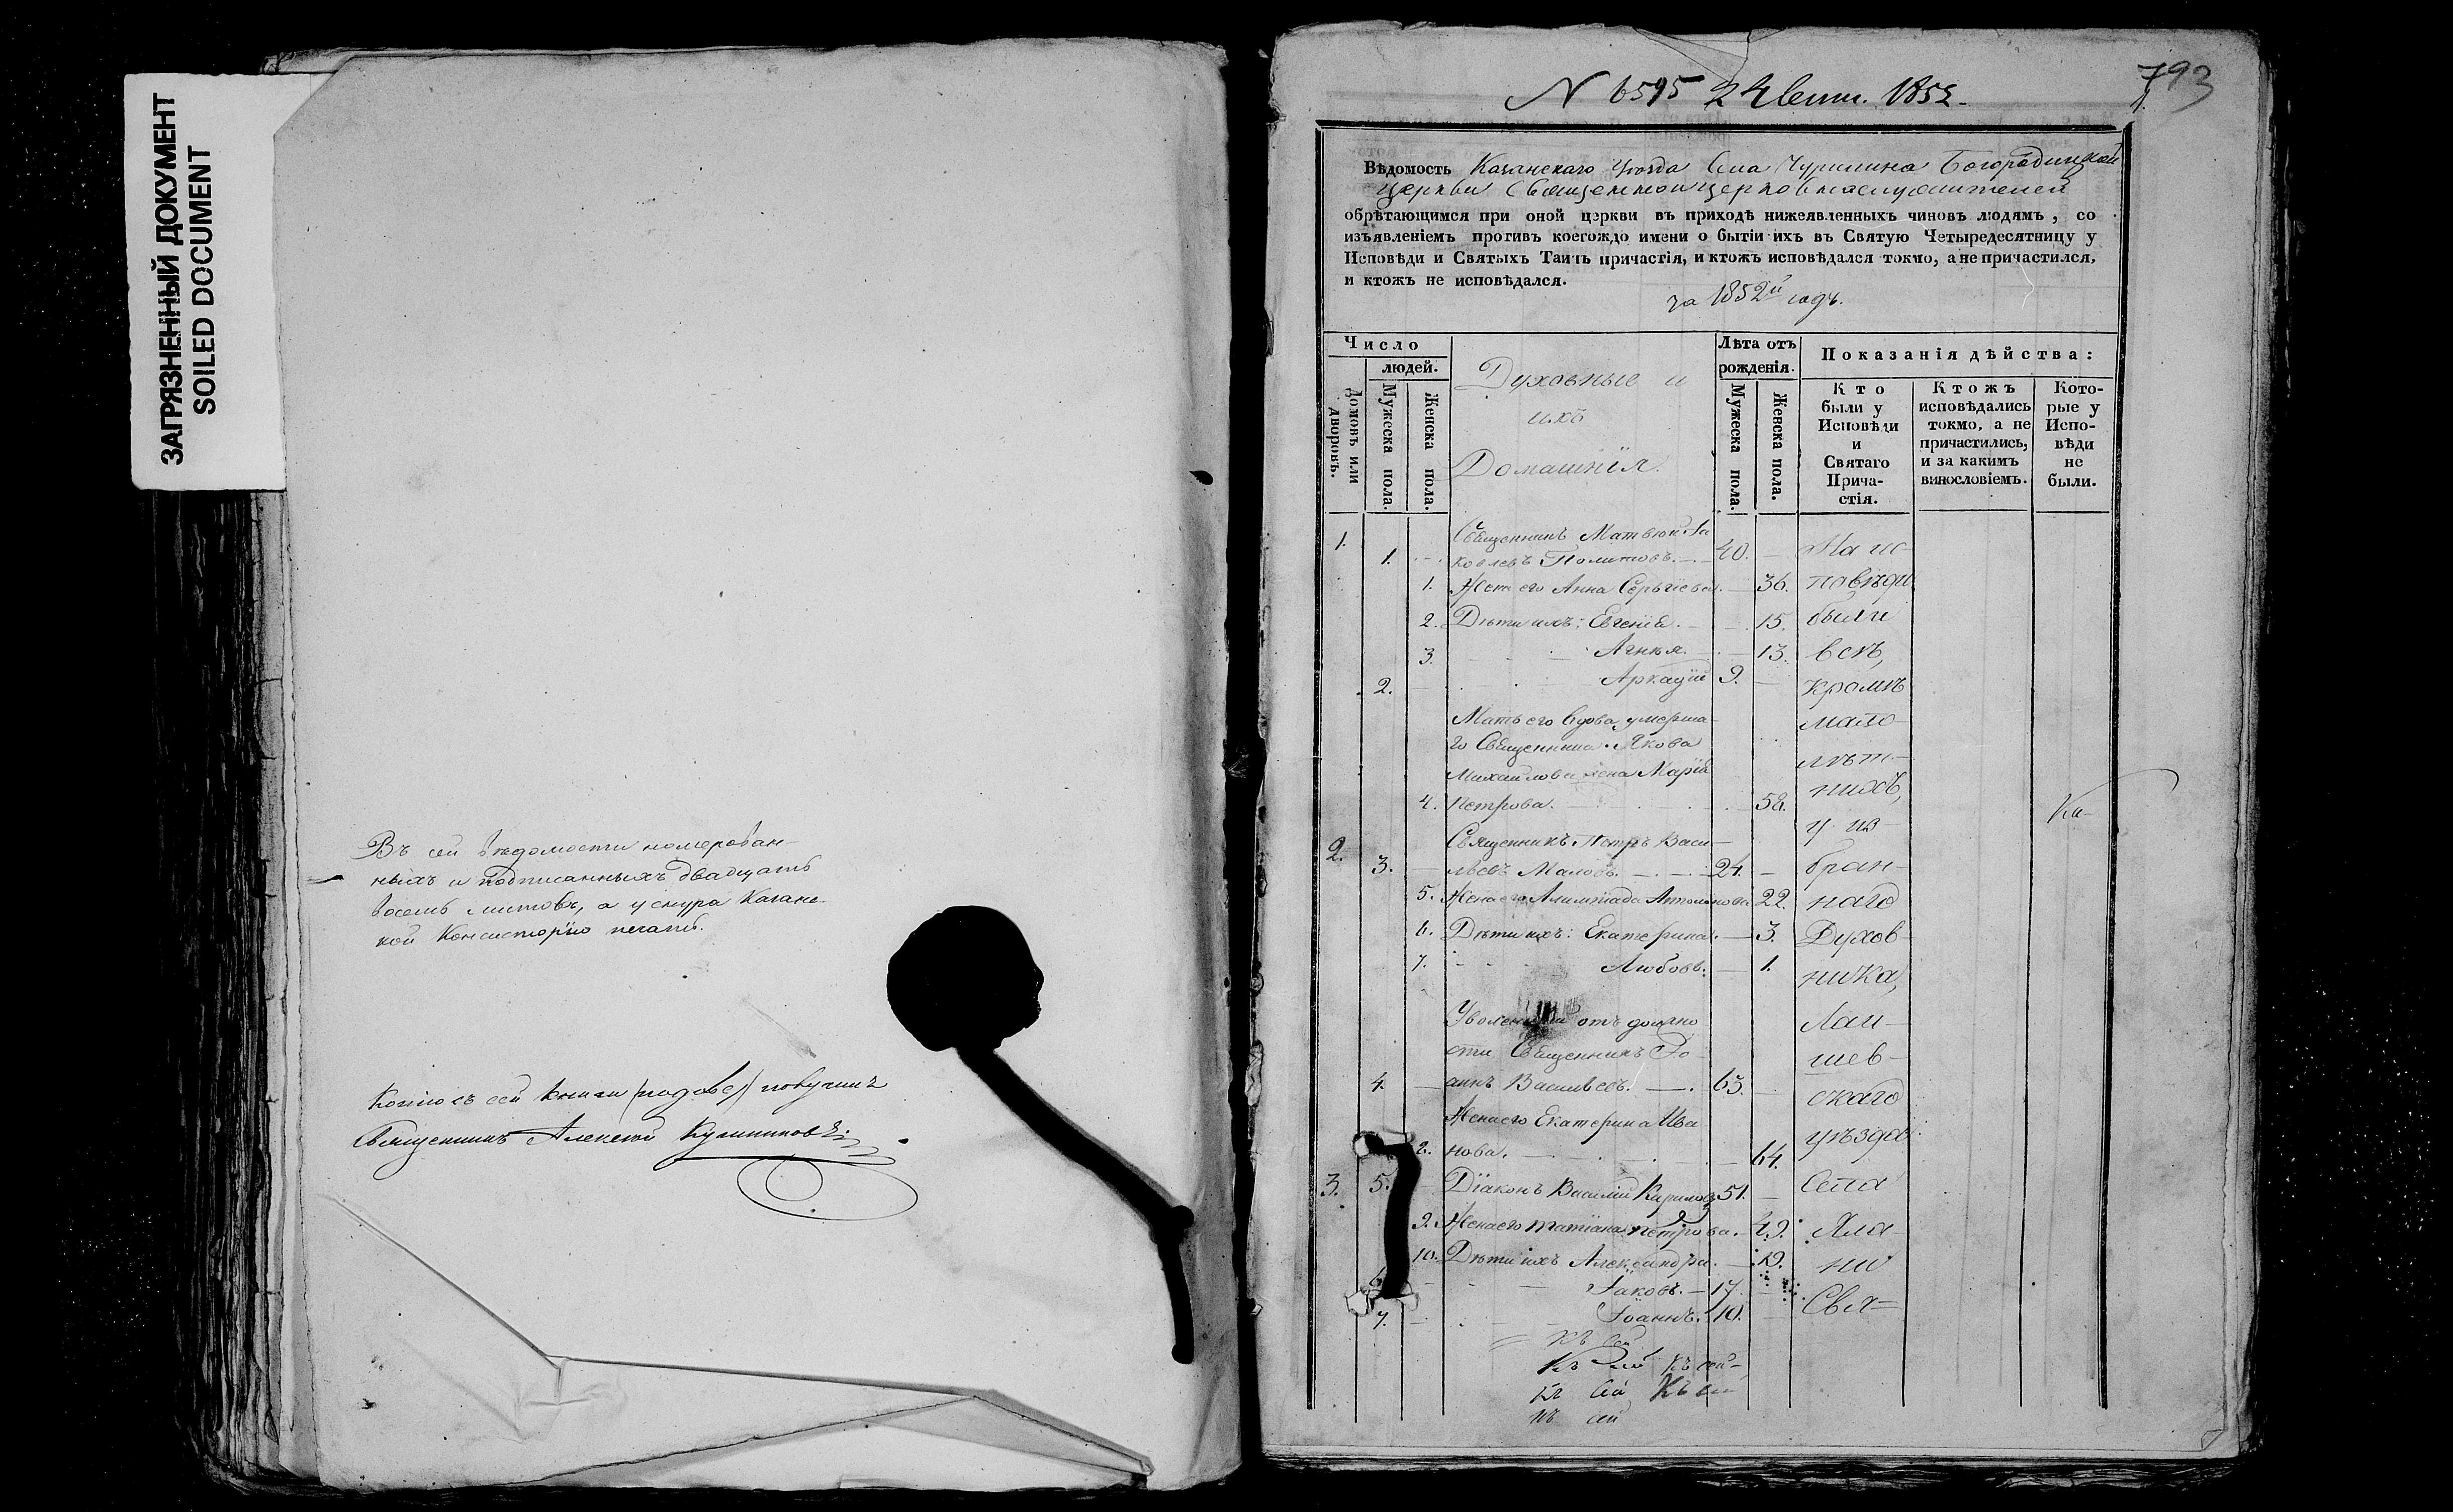 ЗАГРЯЗНЕННЫЙ ДОКУМЕНТ
SOILED DOCUMENT
Въ сей вѣдомости номерован-
ныхъ и подписанныхъ двадцать
восемь листовъ, а у снура Казанс-
кой Консисторіи печать.
Копію съ сей книги получилъ
Священникъ Алексѣй
793
N 6595 24 1852
Вѣдомость Казанскаго Уѣзда Села Чурилина Богородицкой
Церкви Священноицерковнослужителей
обрѣтающимся при оной церкви въ приходѣ нижеявленныхъ чиновъ людямъ, со
изъявленіемъ противъ коегождо имени о бытіи ихъ въ Святую Четыредесятницу у
Исповѣди и Святыхъ Таинъ причастія, и ктожъ исповѣдался токмо, а не причастился,
и ктожъ не исповѣдался.
за 1852й годъ.
Число
людей.
Домовъ или дворовъ.
Мужеска пола.
Женска пола.
Духовные и
ихъ
Домашнія.
Лѣта отъ
рожденія.
Мужеска пола.
Женска пола.
Показанія дѣйства:
Кто
были у
Исповѣди
и
Святаго
Прича-
стія.
Ктожъ
исповѣдались
токмо, а не
причастились,
и за какимъ
винословіемъ.
Кото-
рые у
Испо-
вѣди
не
были.
1. Священникъ Матвѣй Іа
1. ковлевъ Политовъ. 40. На ис-
1. Жена его Анна Сергіева. 36. повѣди
2. Дѣти ихъ: Евгенія. 15. были
3. Агнія. 13. всѣ,
2. Аркадій 9. кромѣ
Мать его вдова умерша- мало-
го Священника Якова лѣт-
Михайлова жена Марія нихъ,
4. Петрова. 58.
2. Священникъ Петръ Васи- у из-
3. льевъ Маловъ. 24. бран-
5. Жена его Алимпіада Антонінова 22. наго
6. Дѣти ихъ: Екатерина. 3. Духов-
7. Любовь. 1. ника,
Уволенный отъ должно Лаи-
сти Священникъ Іо- шев-
4. аннъ Васильевъ. 63. скаго
Жена его Екатерина Ива
8. нова. 64. уѣзда
3. 5. Діаконъ Василій Кириловъ 51. Села
9. Жена его Татіана Петрова. 49.
10. Дѣти ихъ Александра. 19.
6. Іаковъ. 17.
7. Іоаннъ. 10. Свя-
Къ сей
Къ сей Къ сей
Къ сей Къ сей
Къ сей